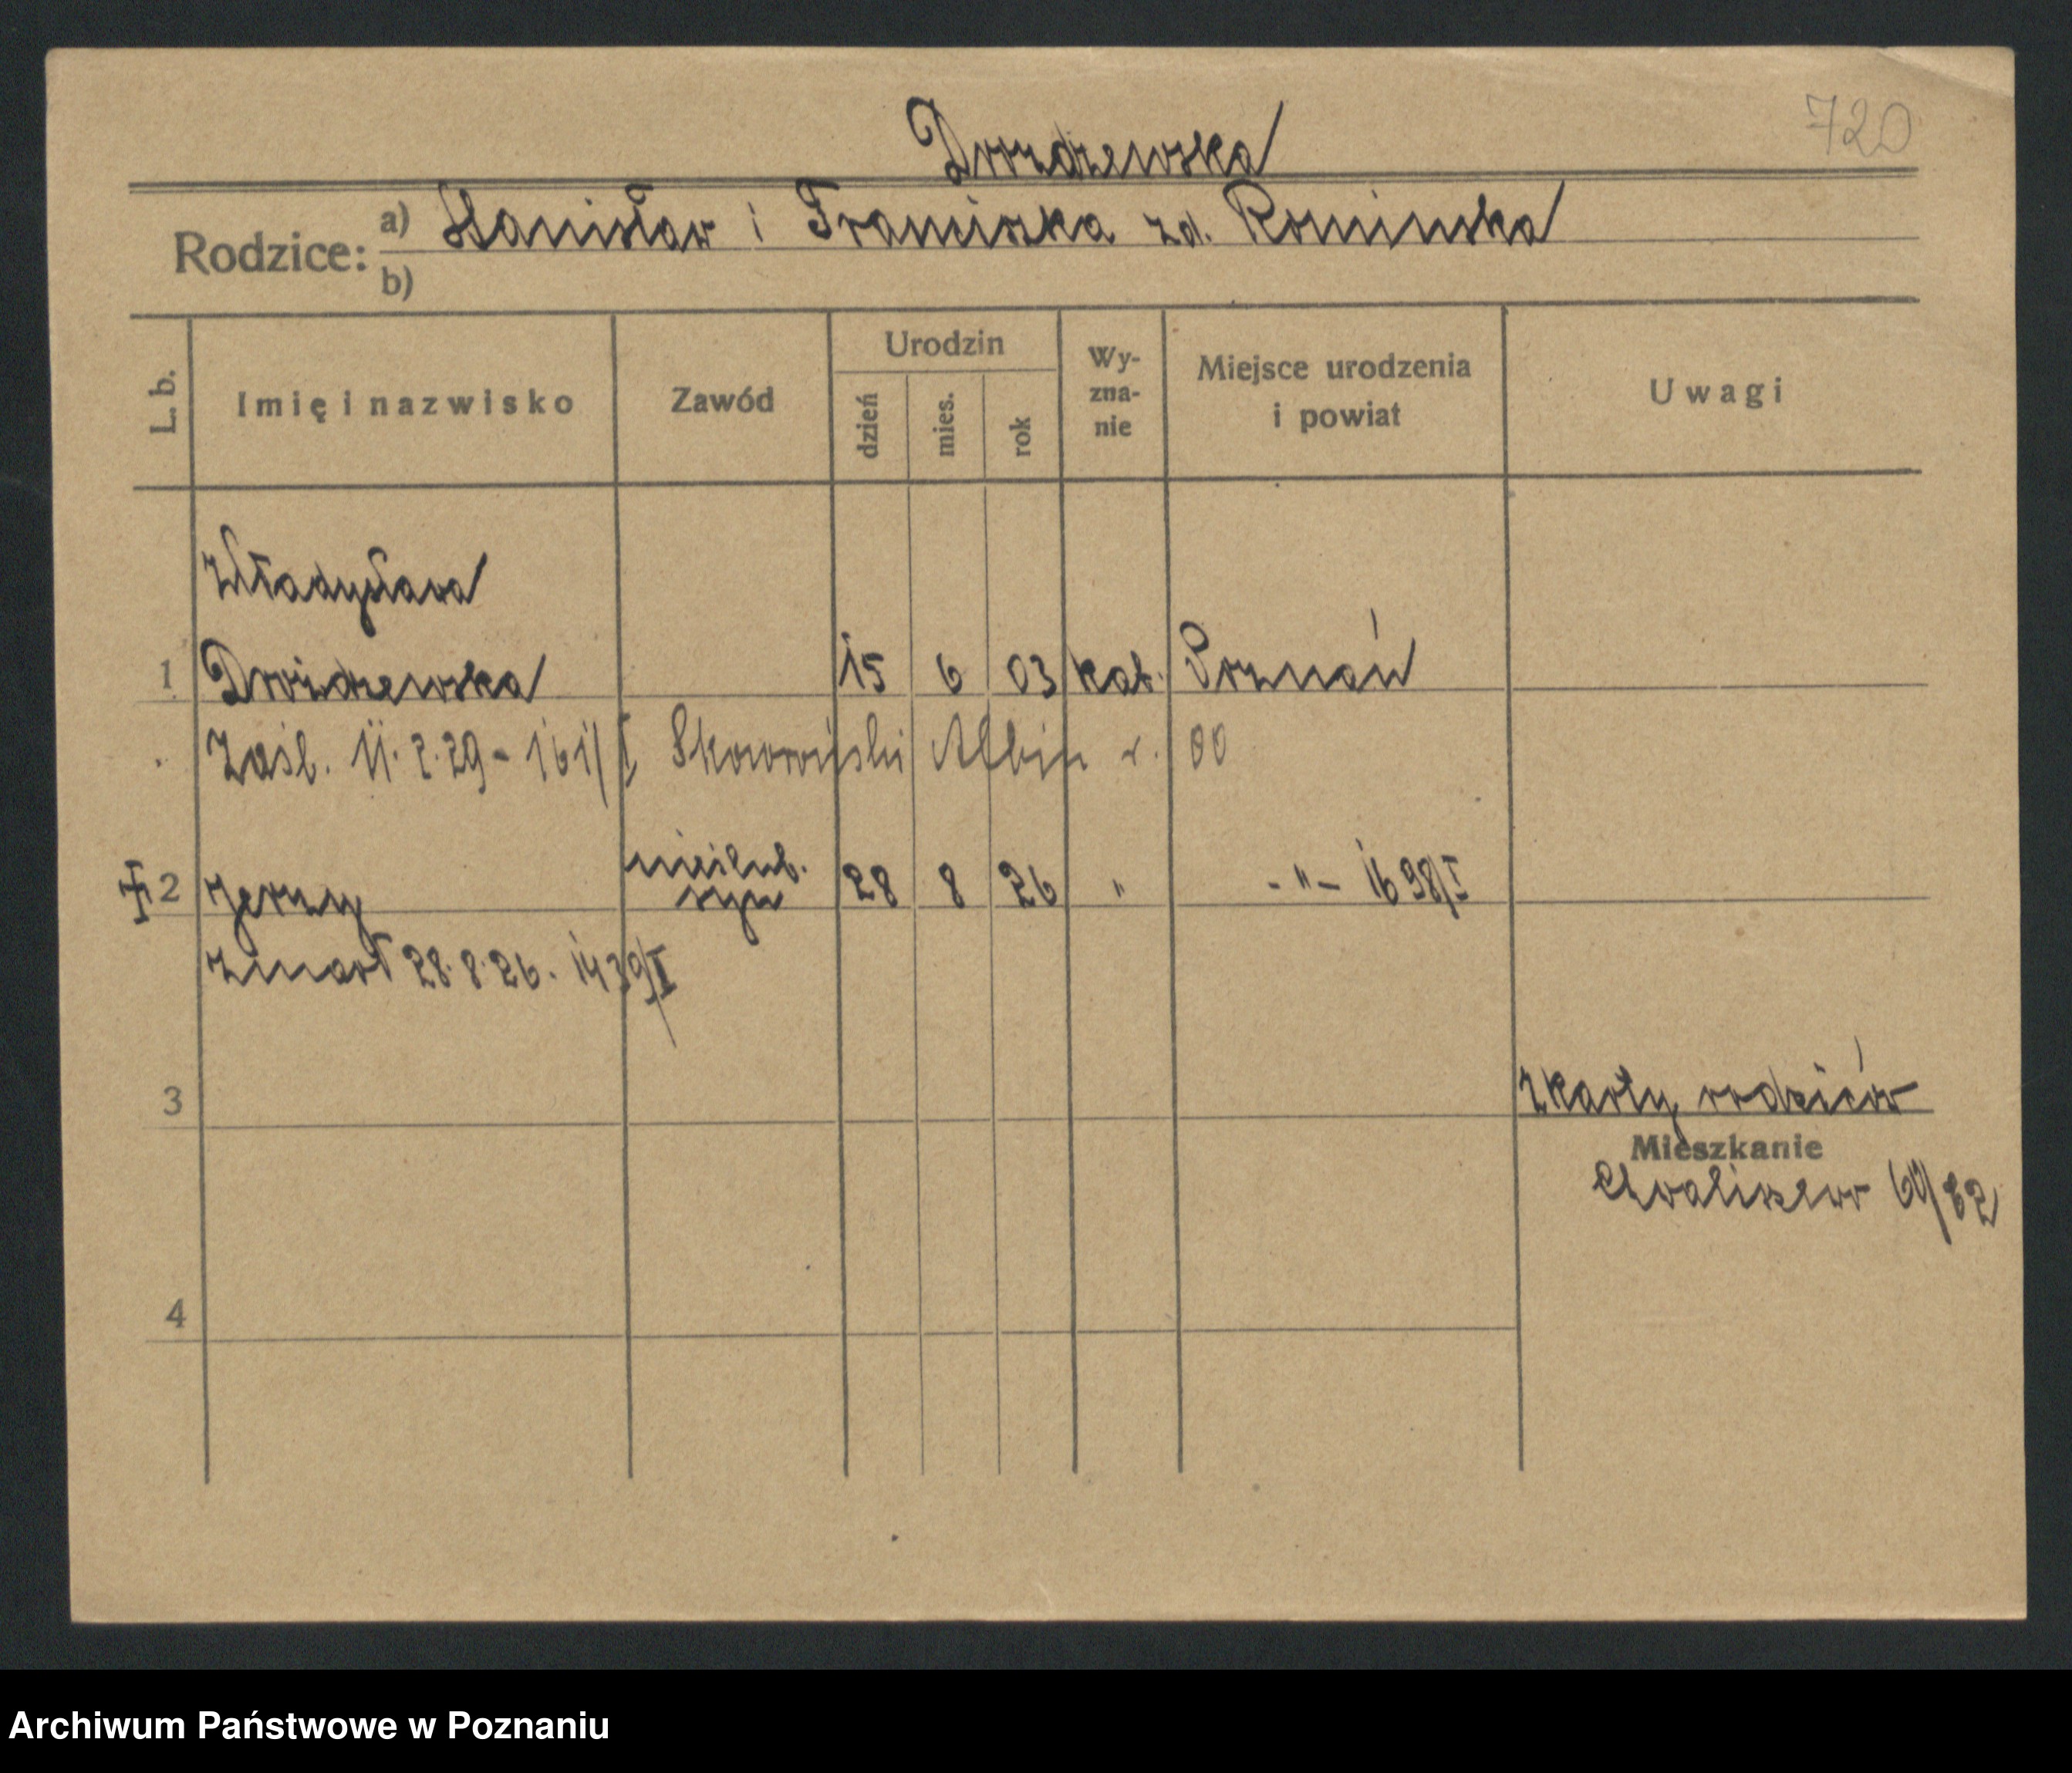 720
Drozdzewska
Rodzice:
a) Stanisław i Franciszka zd. Rominska
b)
L. b.
Imię i nazwisko
Zawód
Urodzin
dzień
mies.
rok
Wy-
zna-
nie
Miejsce urodzenia
i powiat
Uwagi
Władysława
1 Drożdzewska 15 6 03 kat. Poznań
Zaśl. 11.2.29 - 161/I Skowroński Albin r. 00
nieślub.
2 Jerzy syn 28 8 26 " - " - 1698/I
zmarł 28.8.26. 1439/I
3
z karty rodziców
Mieszkanie
Chwaliszewo
4
Archiwum Państwowe w Poznaniu